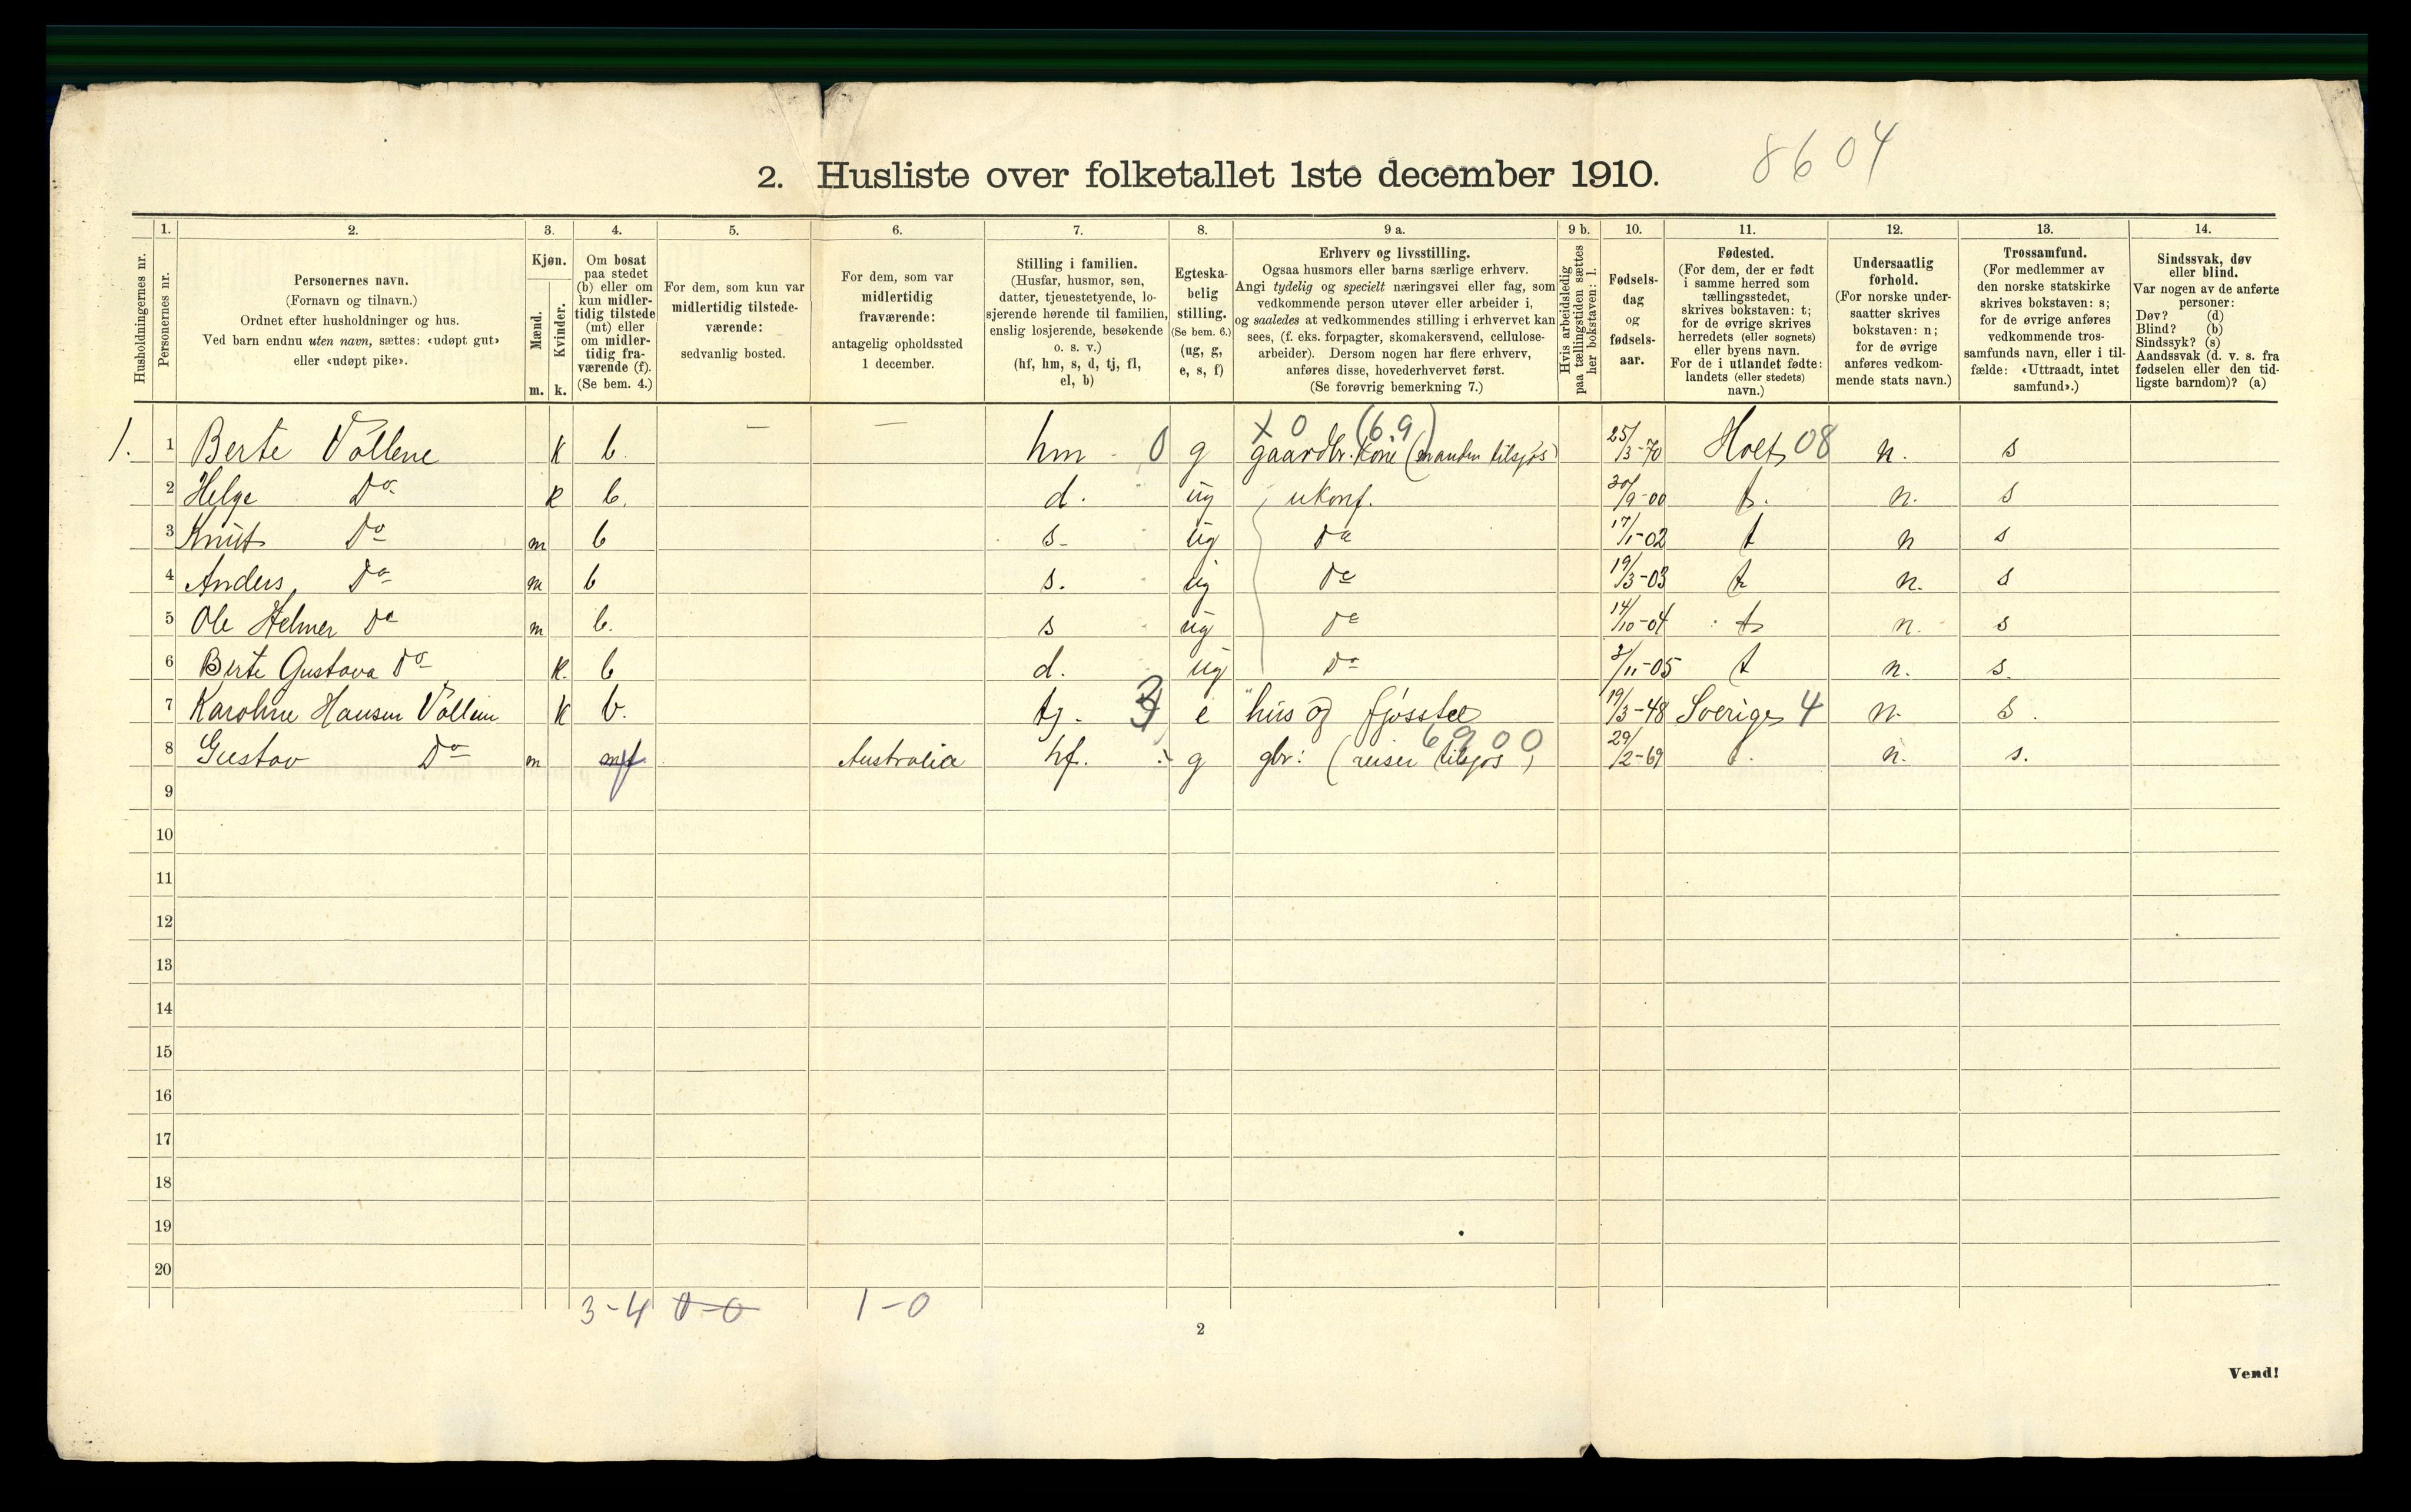 8604
2. Husliste over folketallet 1ste december 1910.
Husholdningernes nr.
1.
Personernes nr.
2.
Personernes navn.
(Fornavn og tilnavn.)
Ordnet efter husholdninger og hus.
Ved barn endnu uten navn, sættes: «udøpt gut»
eller «udøpt pike».
3.
Kjøn.
Mænd.
Kvinder.
m. k.
4.
Om bosat
paa stedet
(b) eller om
kun midler-
tidig tilstede
(mt) eller
om midler-
tidig fra-
værende (f).
(Se bem. 4.)
5.
For dem, som kun var
midlertidig tilstede-
værende:
sedvanlig bosted.
6.
For dem, som var
midlertidig
fraværende:
antagelig opholdssted
1 december.
7.
Stilling i familien.
(Husfar, husmor, søn,
datter, tjenestetyende, lo-
sjerende hørende til familien,
enslig losjerende, besøkende
o. s. v.)
(hf, hm, s, d, tj, fl,
el, b)
8.
Egteska-
belig
stilling.
(Se bem. 6.)
(ug, g,
e, s, f)
9 a.
Erhverv og livsstilling.
Ogsaa husmors eller barns særlige erhverv.
Angi tydelig og specielt næringsvei eller fag, som
vedkommende person utøver eller arbeider i,
og saaledes at vedkommendes stilling i erhvervet kan
sees, (f. eks. forpagter, skomakersvend, cellulose-
arbeider). Dersom nogen har flere erhverv,
anføres disse, hovederhvervet først.
(Se forøvrig bemerkning 7.)
9 b.
Hvis arbeidsledig
paa tællingstiden sættes
her bokstaven: l.
10.
Fødsels-
dag
og
fødsels-
aar.
11.
Fødested.
(For dem, der er født
i samme herred som
tællingsstedet,
skrives bokstaven: t;
for de øvrige skrives
herredets (eller sognets)
eller byens navn.
For de i utlandet fødte:
landets (eller stedets)
navn.)
12.
Undersaatlig
forhold.
(For norske under-
saatter skrives
bokstaven: n;
for de øvrige
anføres vedkom-
mende stats navn.)
13.
Trossamfund.
(For medlemmer av
den norske statskirke
skrives bokstaven: s;
for de øvrige anføres
vedkommende tros-
samfunds navn, eller i til-
fælde: «Uttraadt, intet
samfund».)
14.
Sindssvak, døv
eller blind.
Var nogen av de anførte
personer:
Døv? (d)
Blind? (b)
Sindssyk? (s)
Aandssvak (d. v. s. fra
fødselen eller den tid-
ligste barndom)? (a)
x 0 (6.9)
1. 1 Berte Vollene k b. — — hm 0 g gaardbr. kone (manden tilsjøs) 25/3-70 Holt 08 n. s
2 Helge Do k b. d. ug ukonf. 30/9-00 t. n. s
3 Knut Do m b s- ug do 17/1-02 t n s
4 Anders Do m b s. ug do 19/3-03 t n. s
5 Ole Helmer do m b. s ug do 14/10-04 t n. s
6 Berte Gustava do k. b d. ug do /11-05 t n. s.
7 Karoline Hansen Vollene k b. tj. e hus og fjøsstel 19/3-48 Sverige 4 n. s.
6900
8 Gustav Do m mf Australia hf. g gbr: (reiser tilsjøs) 29/2-69 t. n. s.
9
10
11
12
13
14
15
16
17
18
19
20
3-4 0-0 1-0
2
Vend!